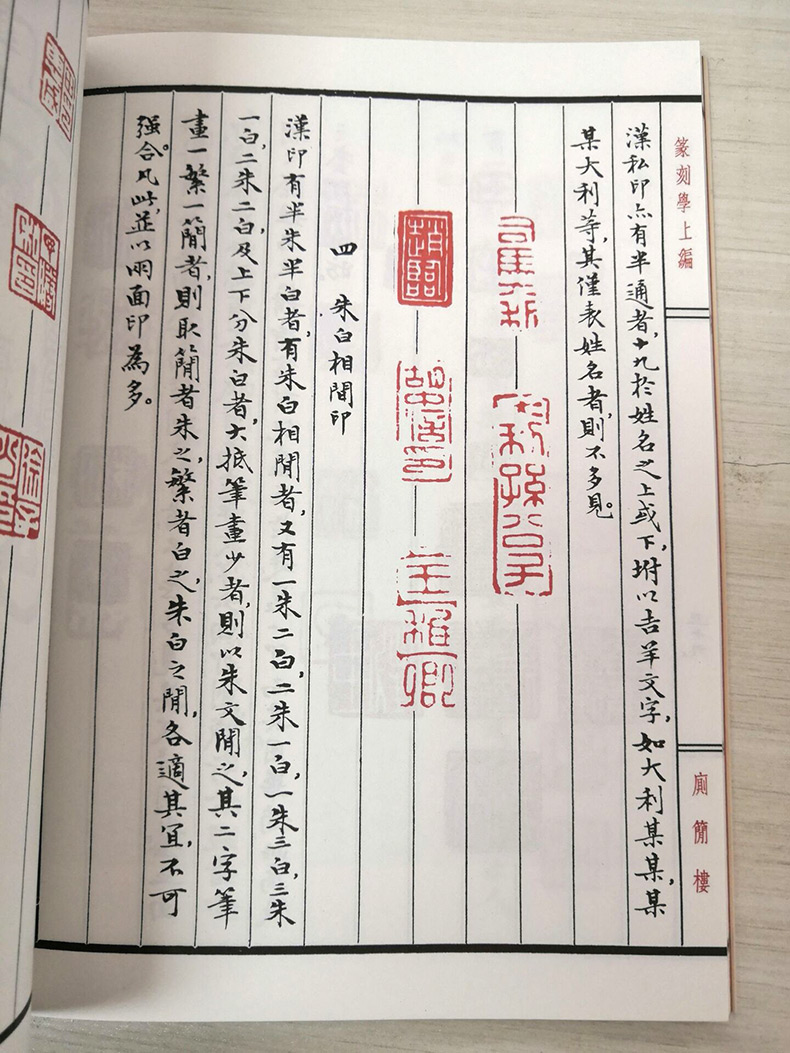 篆刻學上編
廁簡樓
漢私印亦有半通者,十九於姓名之上或下,坿以吉羊文字,如大利某某,某
某大利等,其僅表姓名者,則不多見。
四 朱白相間印
漢印有半朱半白者,有朱白相間者,又有一朱二白,二朱一白,一朱三白,三朱
一白,二朱二白,及上下分朱白者,大抵筆畫少者,則以朱文間之,其二字筆
畫一繁一簡者,則取簡者朱之,繁者白之,朱白之間,各適其宜,不可
强合。凡此,並以兩面印為多。